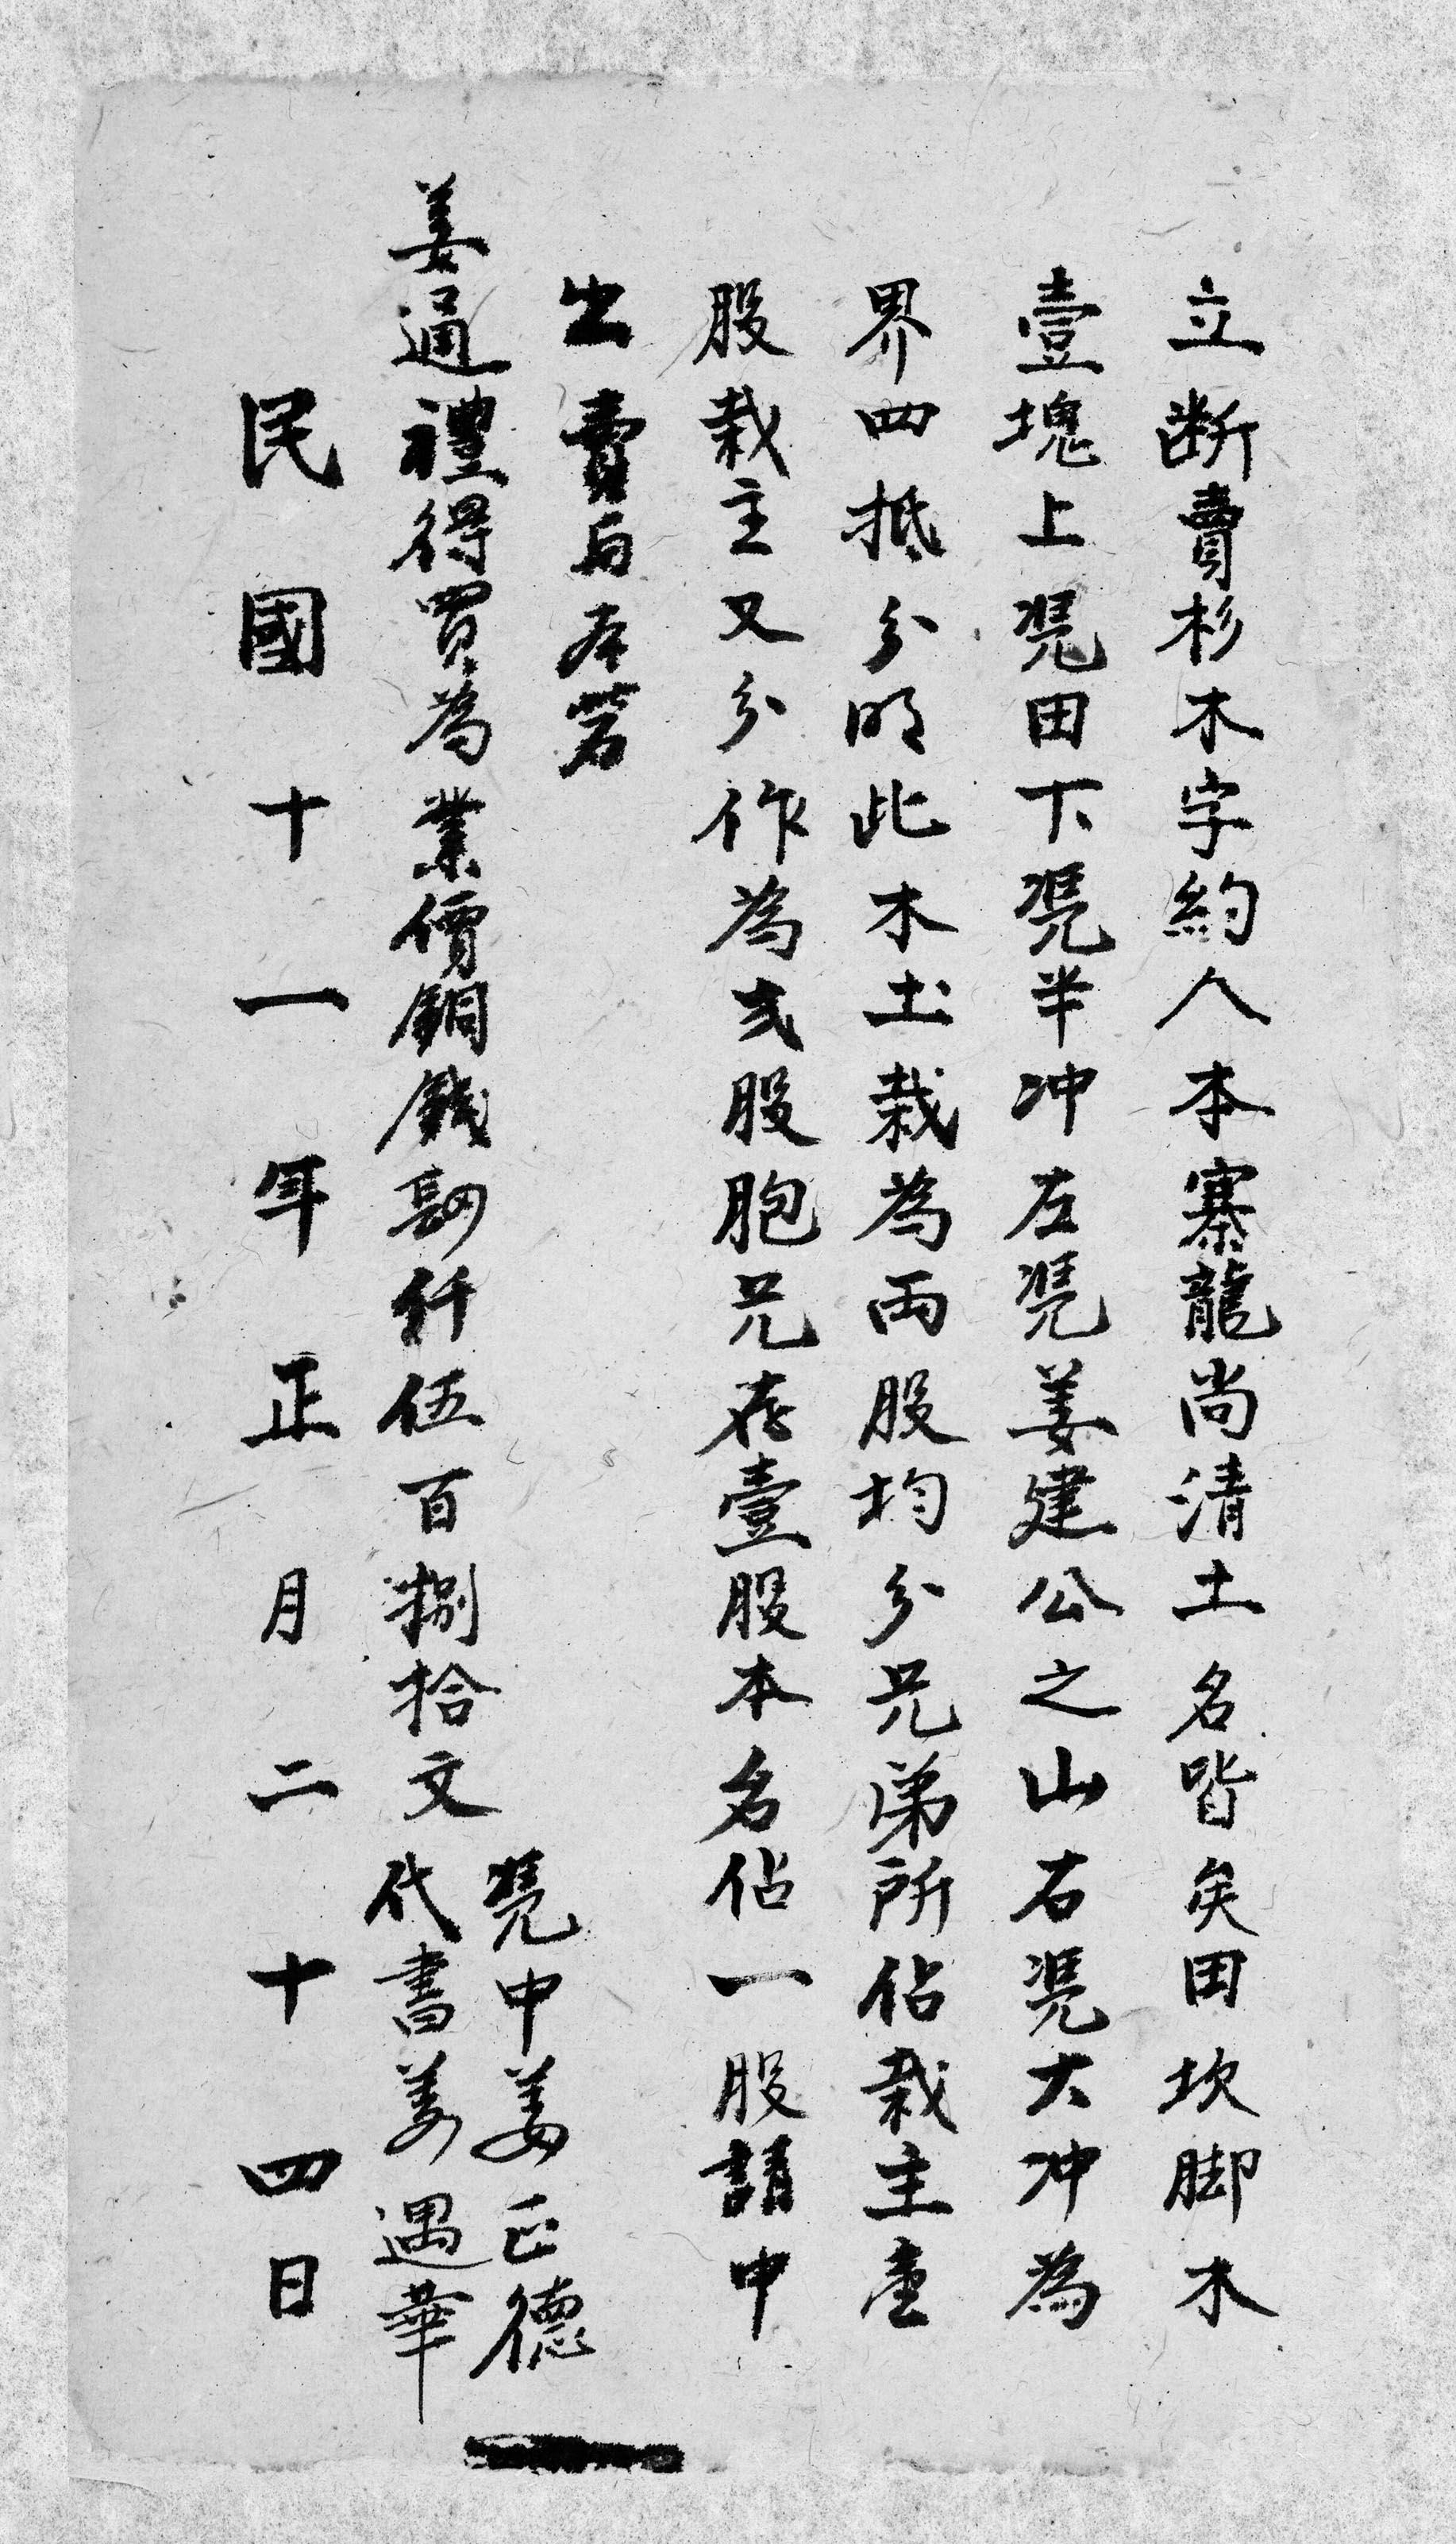 立断賣杉木字約人本寨龍尚清土名皆矣田坎脚木
壹塊上凴田下凴半冲左凴姜建公之山右凴大冲為
界四抵分明此木土栽為両股均分兄弟所佔栽主壹
股栽主又分作為弍股胞兄存壹股本名佔一股請中
出賣与本寨
姜通禮得買為業價銅錢仟伍百捌拾文
凴中姜正德
代書姜遇華
民國十一年正月二十四日